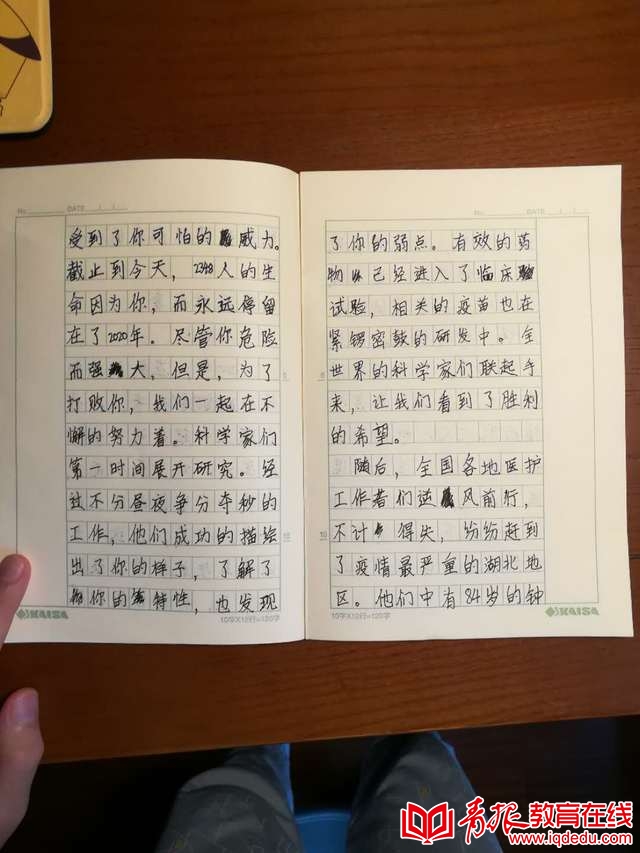 No.
DATE / /
受到了你可怕的威力。
截止到今天，2348人的生
命因为你，而永远停留
在了2020年。尽管你危险
而强大，但是，为了
打败你，我们一起在不
懈的努力着。科学家们
第一时间展开研究。经
过不分昼夜争分夺秒的
工作，他们成功的描绘
出了你的样子，了解了
你的特性，也发现
KAISA
10字X12行=120字
No.
DATE / /
了你的弱点。有效的药
物已经进入了临床
试验，相关的疫苗也在
紧锣密鼓的研发中。全
世界的科学家们联起手
来，让我们看到了胜利
的希望。
随后，全国各地医护
工作者们逆风前行，
不计得失，纷纷赶到
了疫情最严重的湖北地
区。他们中有84岁的钟
KAISA
10字X12行=120字
青报教育在线
www.iqdedu.com